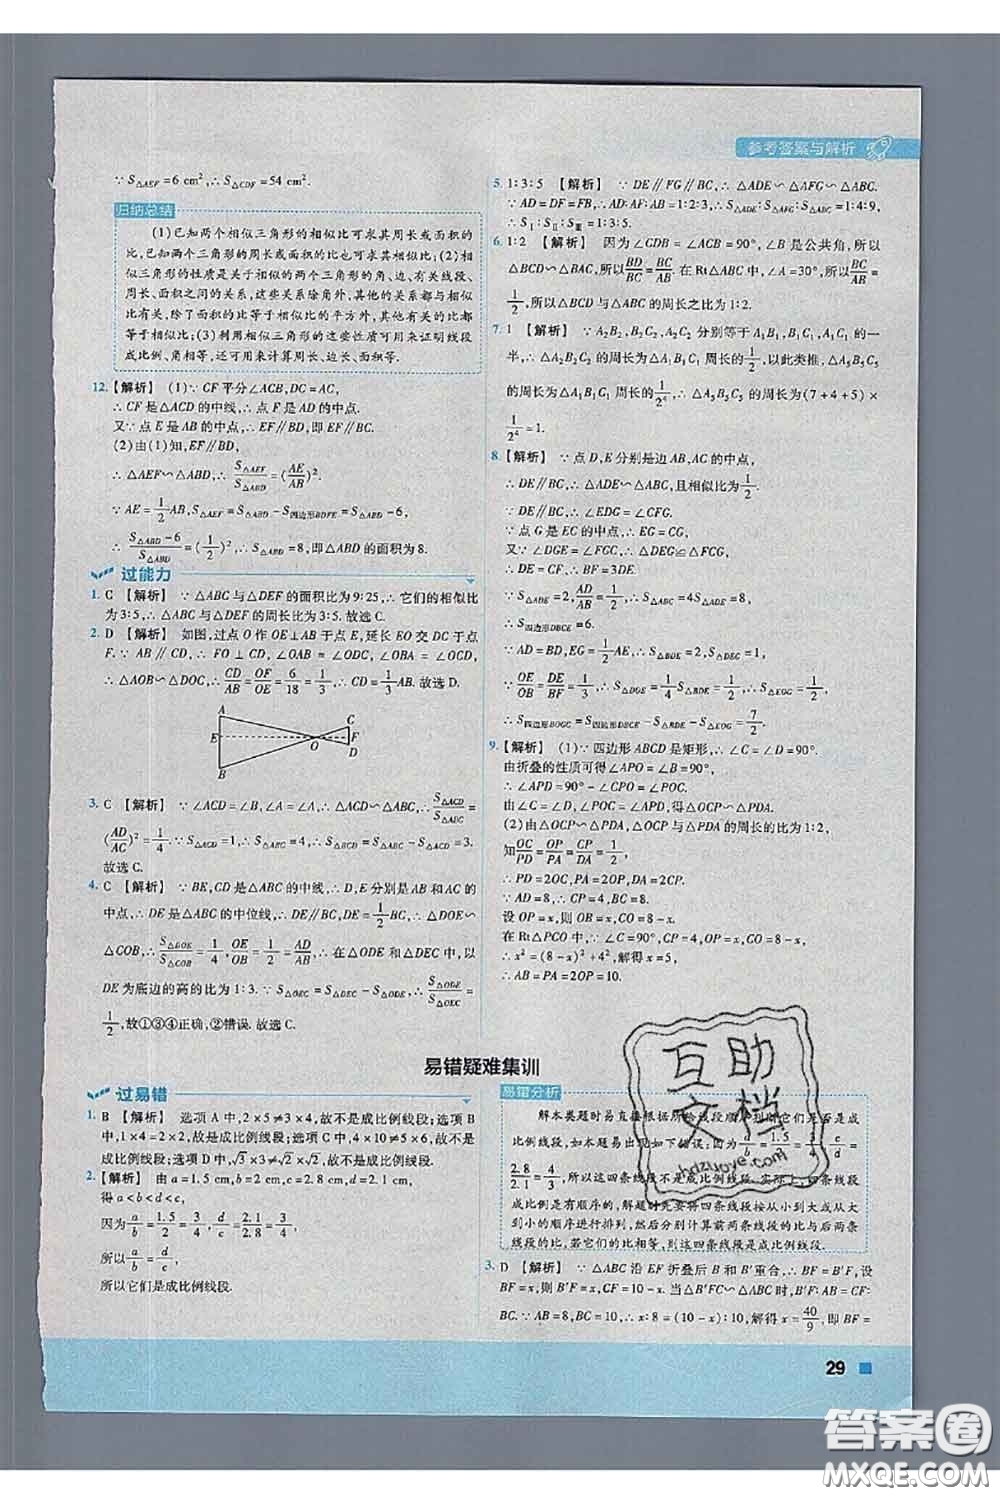 参考答案与解析
∵S△AEF=6 cm²,∴S△CDF=54 cm².
归纳总结
(1)已知两个相似三角形的相似比可求其周长或面积的
比,已知两个三角形的周长或面积的比也可求其相似比;(2)相
似三角形的性质是关于相似的两个三角形的角、边、有关线段、
周长、面积之间的关系,这些关系除角外,其他的关系都与相似
比有关,除了面积的比等于相似比的平方外,其他有关的比都
等于相似比;(3)利用相似三角形的这些性质可用来证明线段
成比例、角相等,还可用来计算周长、边长、面积等.
12.【解析】 (1)∵CF平分∠ACB,DC=AC,
∴CF是△ACD的中线,∴点F是AD的中点.
又∵点E是AB的中点,∴EF∥BD,即EF∥BC.
(2)由(1)知,EF∥BD,
∴△AEF∽△ABD,∴S△AEF/S△ABD=(AE/AB)².
∵AE=1/2AB,S△AEF=S△ABD-S四边形BDFE=S△ABD-6,
∴(S△ABD-6)/S△ABD=(1/2)²,∴S△ABD=8,即△ABD的面积为8.
过能力
1. C 【解析】 ∵△ABC与△DEF的面积比为9:25,∴它们的相似比
为3:5,∴△ABC与△DEF的周长比为3:5.故选C.
2. D 【解析】 如图,过点O作OE⊥AB于点E,延长EO交DC于点
F.∵AB∥CD,∴FO⊥CD,∠OAB=∠ODC,∠OBA=∠OCD,
∴△AOB∽△DOC,∴CD/AB=OF/OE=6/18=1/3,∴CD=1/3AB.故选D.
A
C
E O F
D
B
3. C 【解析】 ∵∠ACD=∠B,∠A=∠A,∴△ACD∽△ABC,∴S△ACD/S△ABC=
(AD/AC)²=1/4.∵S△ACD=1,∴S△ABC=4,∴S△BCD=S△ABC-S△ACD=3.
故选C.
4. C 【解析】 ∵BE,CD是△ABC的中线,∴D,E分别是AB和AC的
中点,∴DE是△ABC的中位线,∴DE∥BC,DE=1/2BC,∴△DOE∽
△COB,∴S△DOE/S△COB=1/4,OE/OB=1/2=AD/AB.∴在△ODE和△DEC中,以
DE为底边的高的比为1:3.∵S△OEC=S△DEC-S△ODE,∴S△ODE/S△OEC=
1/2,故①③④正确,②错误.故选C.
5. 1:3:5 【解析】 ∵DE∥FG∥BC,∴△ADE∽△AFG∽△ABC.
∵AD=DF=FB,∴AD:AF:AB=1:2:3,∴S△ADE:S△AFG:S△ABC=1:4:9,
∴SⅠ:SⅡ:SⅢ=1:3:5.
6. 1:2 【解析】 因为∠CDB=∠ACB=90°,∠B是公共角,所以
△BCD∽△BAC,所以BD/BC=BC/AB.在Rt△ABC中,∠A=30°,所以BC/AB=
1/2,所以△CBD与△ABC的周长之比为1:2.
7. 1 【解析】 ∵A₂B₂,B₂C₂,A₂C₂分别等于A₁B₁,B₁C₁,A₁C₁的一
半,∴△A₂B₂C₂的周长为△A₁B₁C₁周长的1/2,以此类推,△A₅B₅C₅
的周长为△A₁B₁C₁周长的1/2⁴,∴△A₅B₅C₅的周长为(7+4+5)×
1/2⁴=1.
8.【解析】 ∵点D,E分别是边AB,AC的中点,
∴DE∥BC,∴△ADE∽△ABC,且相似比为1/2.
∵DE∥BC,∴∠EDG=∠CFG.
∵点G是EC的中点,∴EG=CG,
又∵∠DGE=∠FGC,∴△EDG≌△CFG,
∴DE=CF,∴BF=3DE.
∵S△ADE=2,AD/AB=1/2,∴S△ABC=4S△ADE=8,
∴S四边形DBCE=6.
∵AD=BD,EG=1/2AE,∴S△BDE=2,S△DEG=1.
∵OE/OB=DE/BF=1/3,∴S△ODE=1/4S△BDE=1/2,∴S△EOG=1/2,
∴S四边形BOGC=S四边形DBCE-S△BDE-S△EOG=7/2.
9.【解析】 (1)∵四边形ABCD是矩形,∴∠C=∠D=90°.
由折叠的性质可得∠APO=∠B=90°,
∴∠APD=90°-∠CPO=∠POC.
由∠C=∠D,∠POC=∠APD,得△OCP∽△PDA.
(2)由△OCP∽△PDA,△OCP与△PDA的周长的比为1:2,
知OC/PD=OP/PA=CP/DA=1/2,
∴PD=2OC,PA=2OP,DA=2CP.
∵AD=8,∴CP=4,BC=8.
设OP=x,则OB=x,CO=8-x.
在Rt△PCO中,∵∠C=90°,CP=4,OP=x,CO=8-x,
∴x²=(8-x)²+4²,解得x=5,
∴AB=PA=2OP=10.
易错疑难集训
过易错
1. B 【解析】 选项A中,2×5≠3×4,故不是成比例线段;选项B
中,1×4=2×2,故是成比例线段;选项C中,4×10≠5×6,故不是
成比例线段;选项D中,√3×√3≠√2×√2,故不是成比例线段.
2.【解析】 由a=1.5 cm,b=2 cm,c=2.8 cm,d=2.1 cm,
得a<b<d<c,
因为a/b=1.5/2=3/4,d/c=2.1/2.8=3/4,
所以a/b=d/c,
所以它们是成比例线段.
易错分析
解本类题时易直接根据所给线段顺序判断它们是否成
比例线段,如本题易出现如下错误:因为a/b=1.5/2=3/4,c/d=
2.8/2.1=4/3,所以这四条线段不是成比例线段.实际上,四条线段
成比例是有顺序的,解题时先要将四条线段按从小到大或从大
到小的顺序进行排列,然后分别计算前两条线段的比与后两条
线段的比,若它们的比相等,则这四条线段是成比例线段.
3. D 【解析】 ∵△ABC沿EF折叠后B和B′重合,∴BF=B′F,设
BF=x,则B′F=x,CF=10-x.当△B′FC∽△ABC,B′F:AB=CF:
BC.∵AB=8,BC=10,∴x:8=(10-x):10,解得x=40/9,即BF=
互助
文档
hdzuoye.com
29
答案圈
MXQE.COM